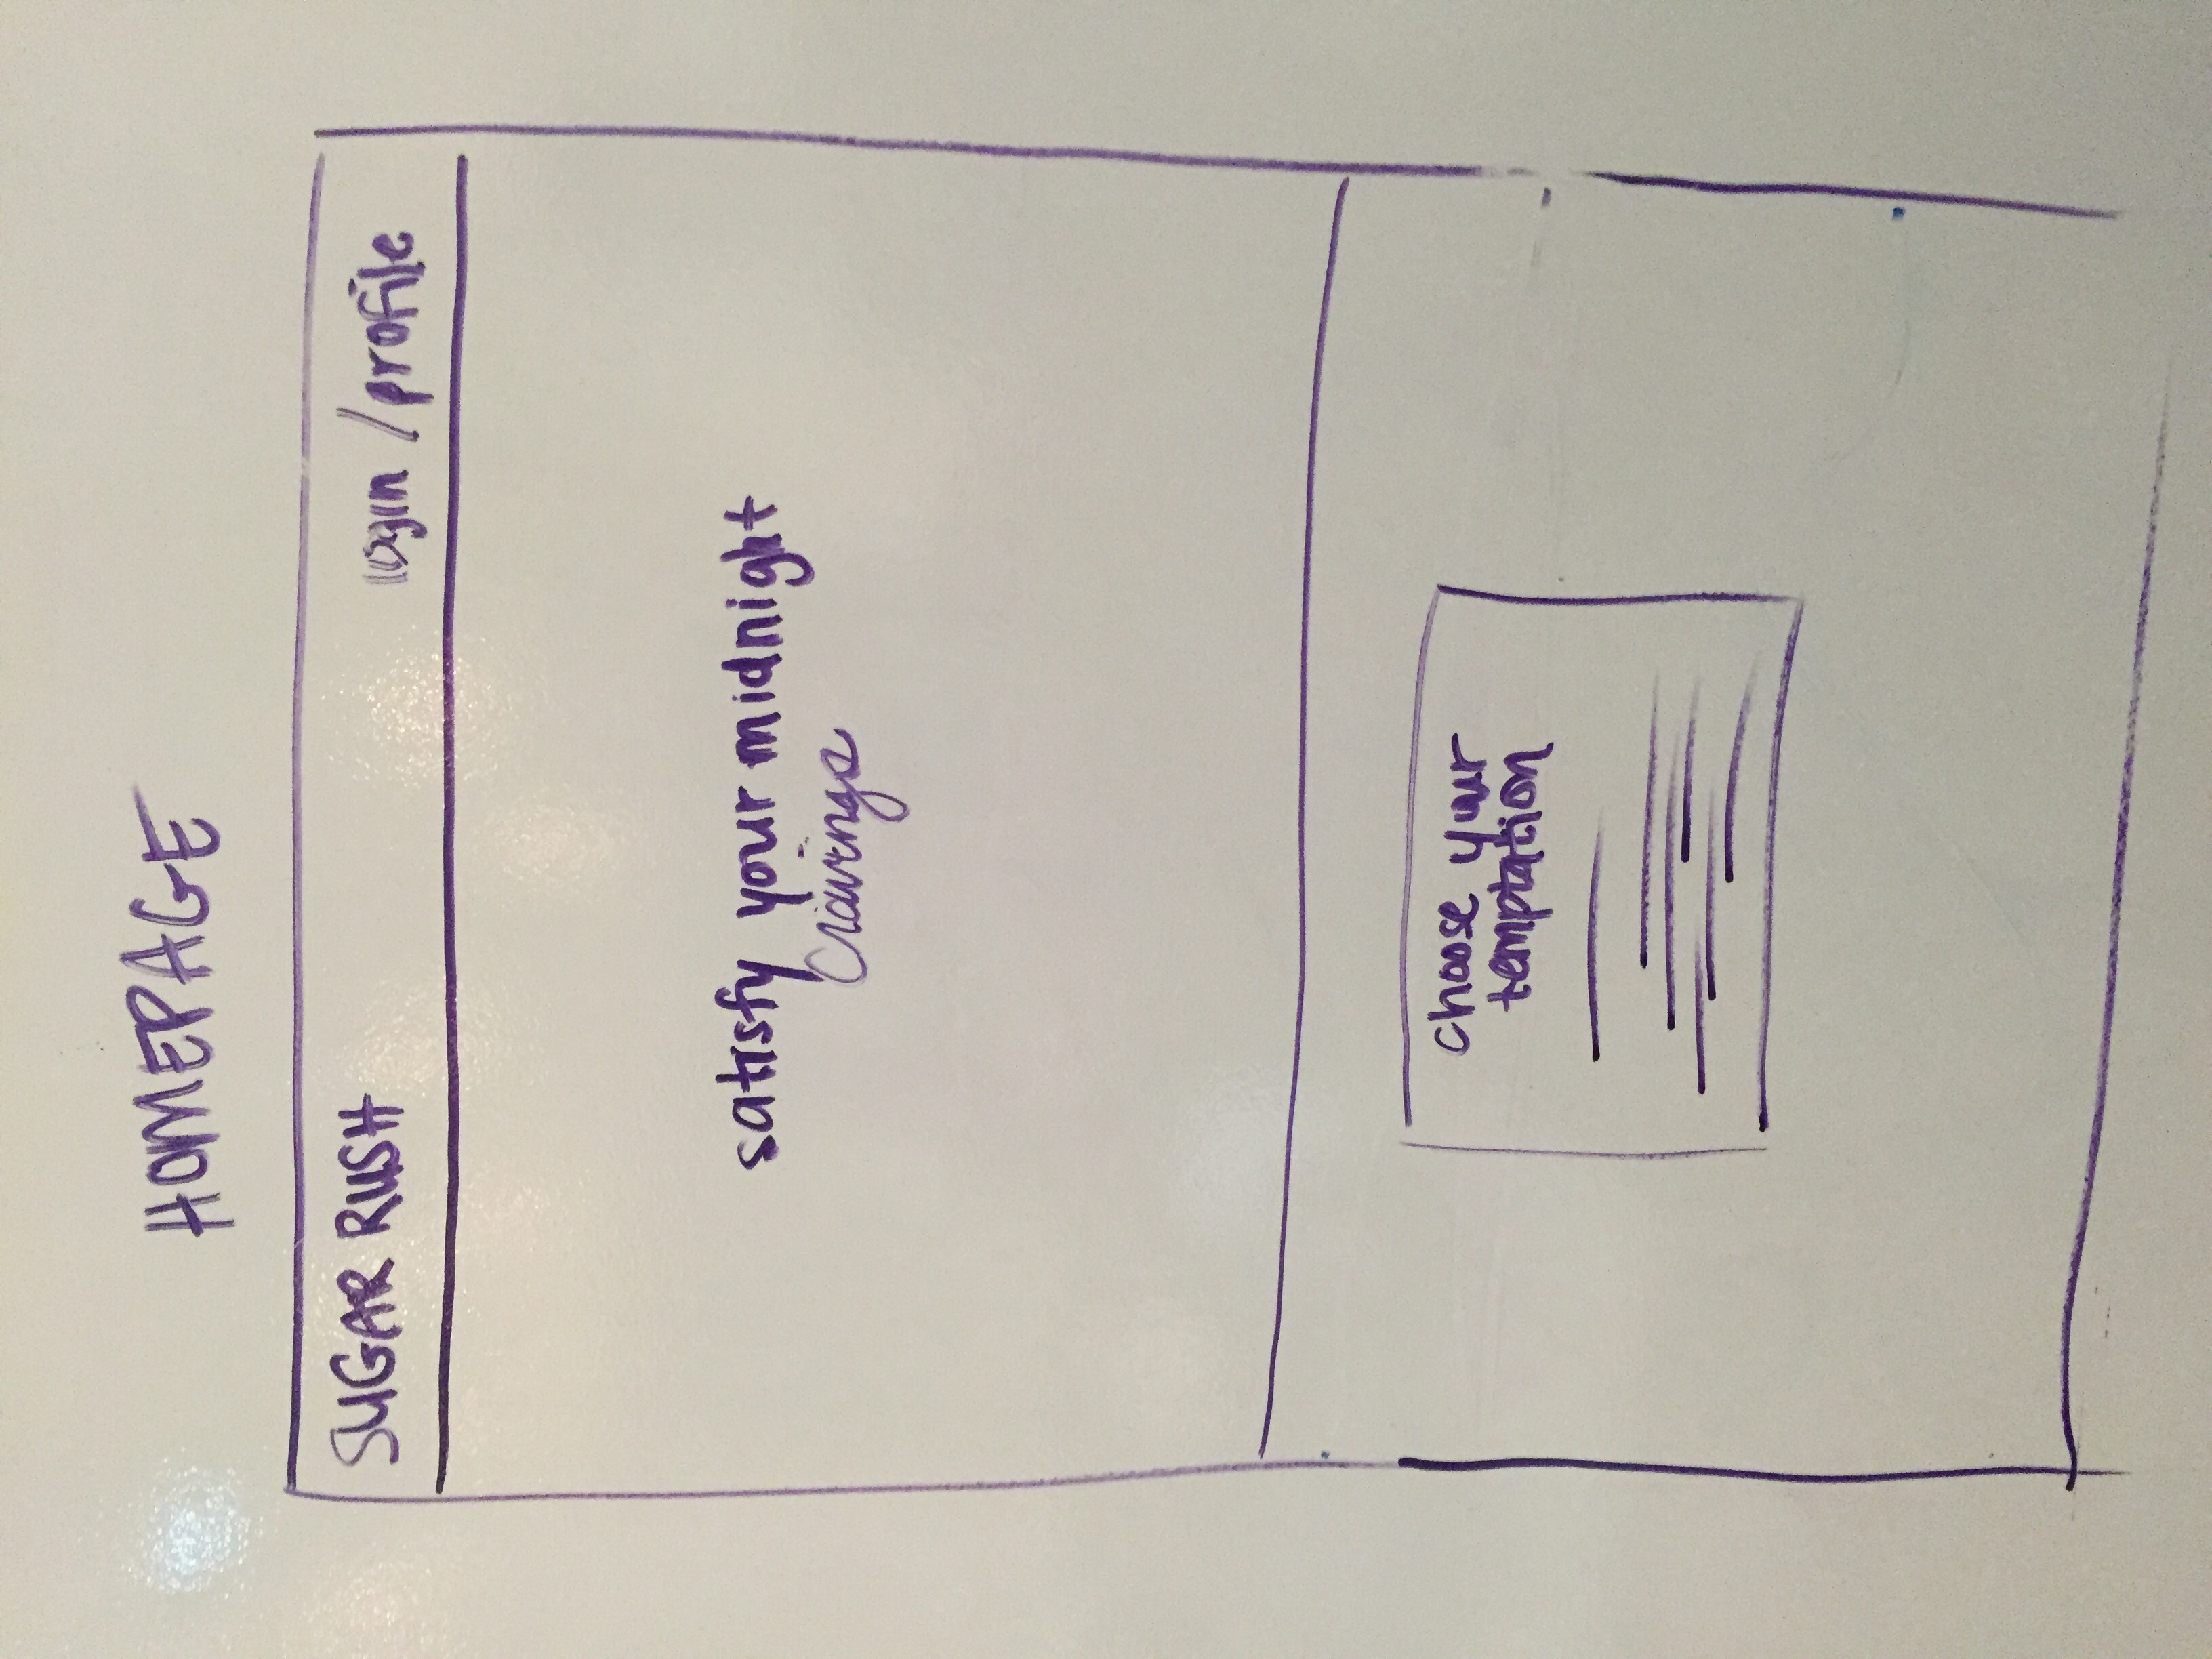 HOMEPAGE
SUGAR RUSH login / profile
satisfy your midnight
Cravings
choose your
temptation